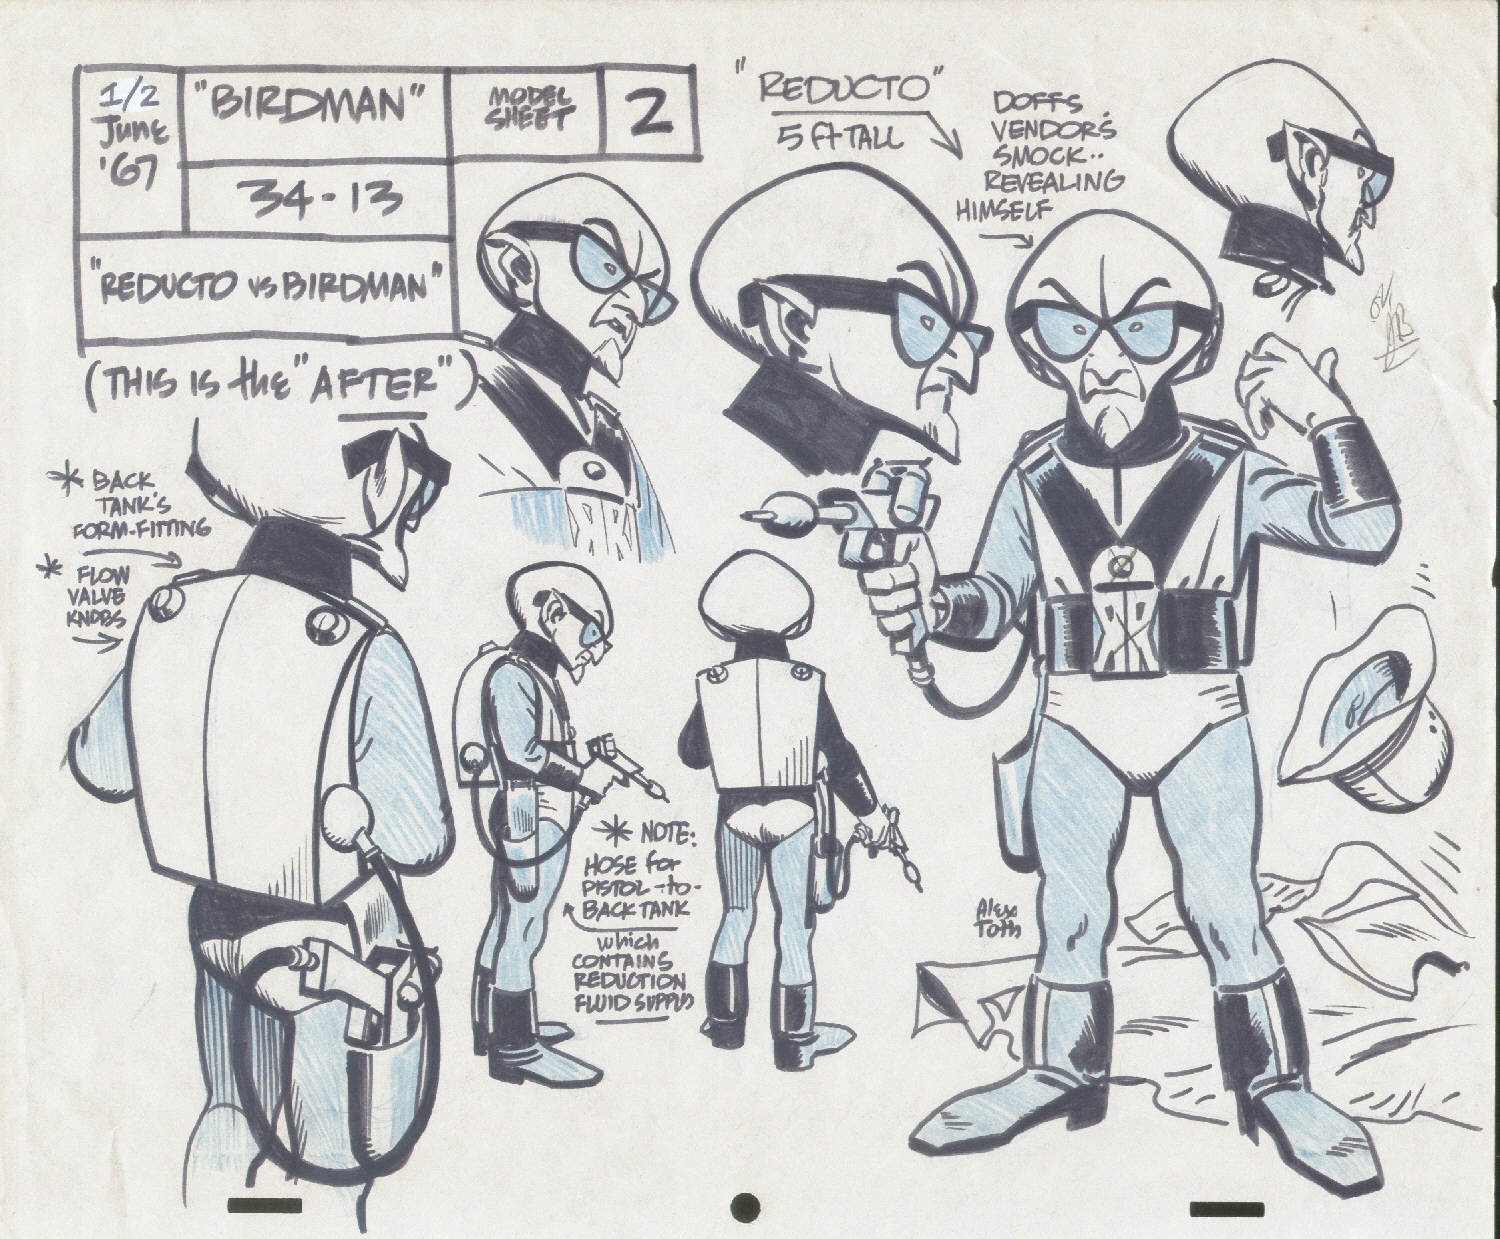 1/2
June
'67
"BIRDMAN"
MODEL
SHEET
2
34-13
"REDUCTO vs BIRDMAN"
(THIS IS the "AFTER")
"REDUCTO"
5 Ft TALL
DOFFS
VENDOR'S
SMOCK..
REVEALING
HIMSELF
* BACK
TANK'S
FORM-FITTING
* FLOW
VALVE
KNOBS
* NOTE:
HOSE for
PISTOL-to-
BACK TANK
which
CONTAINS
REDUCTION
FLUID SUPPLY
Alex
Toth